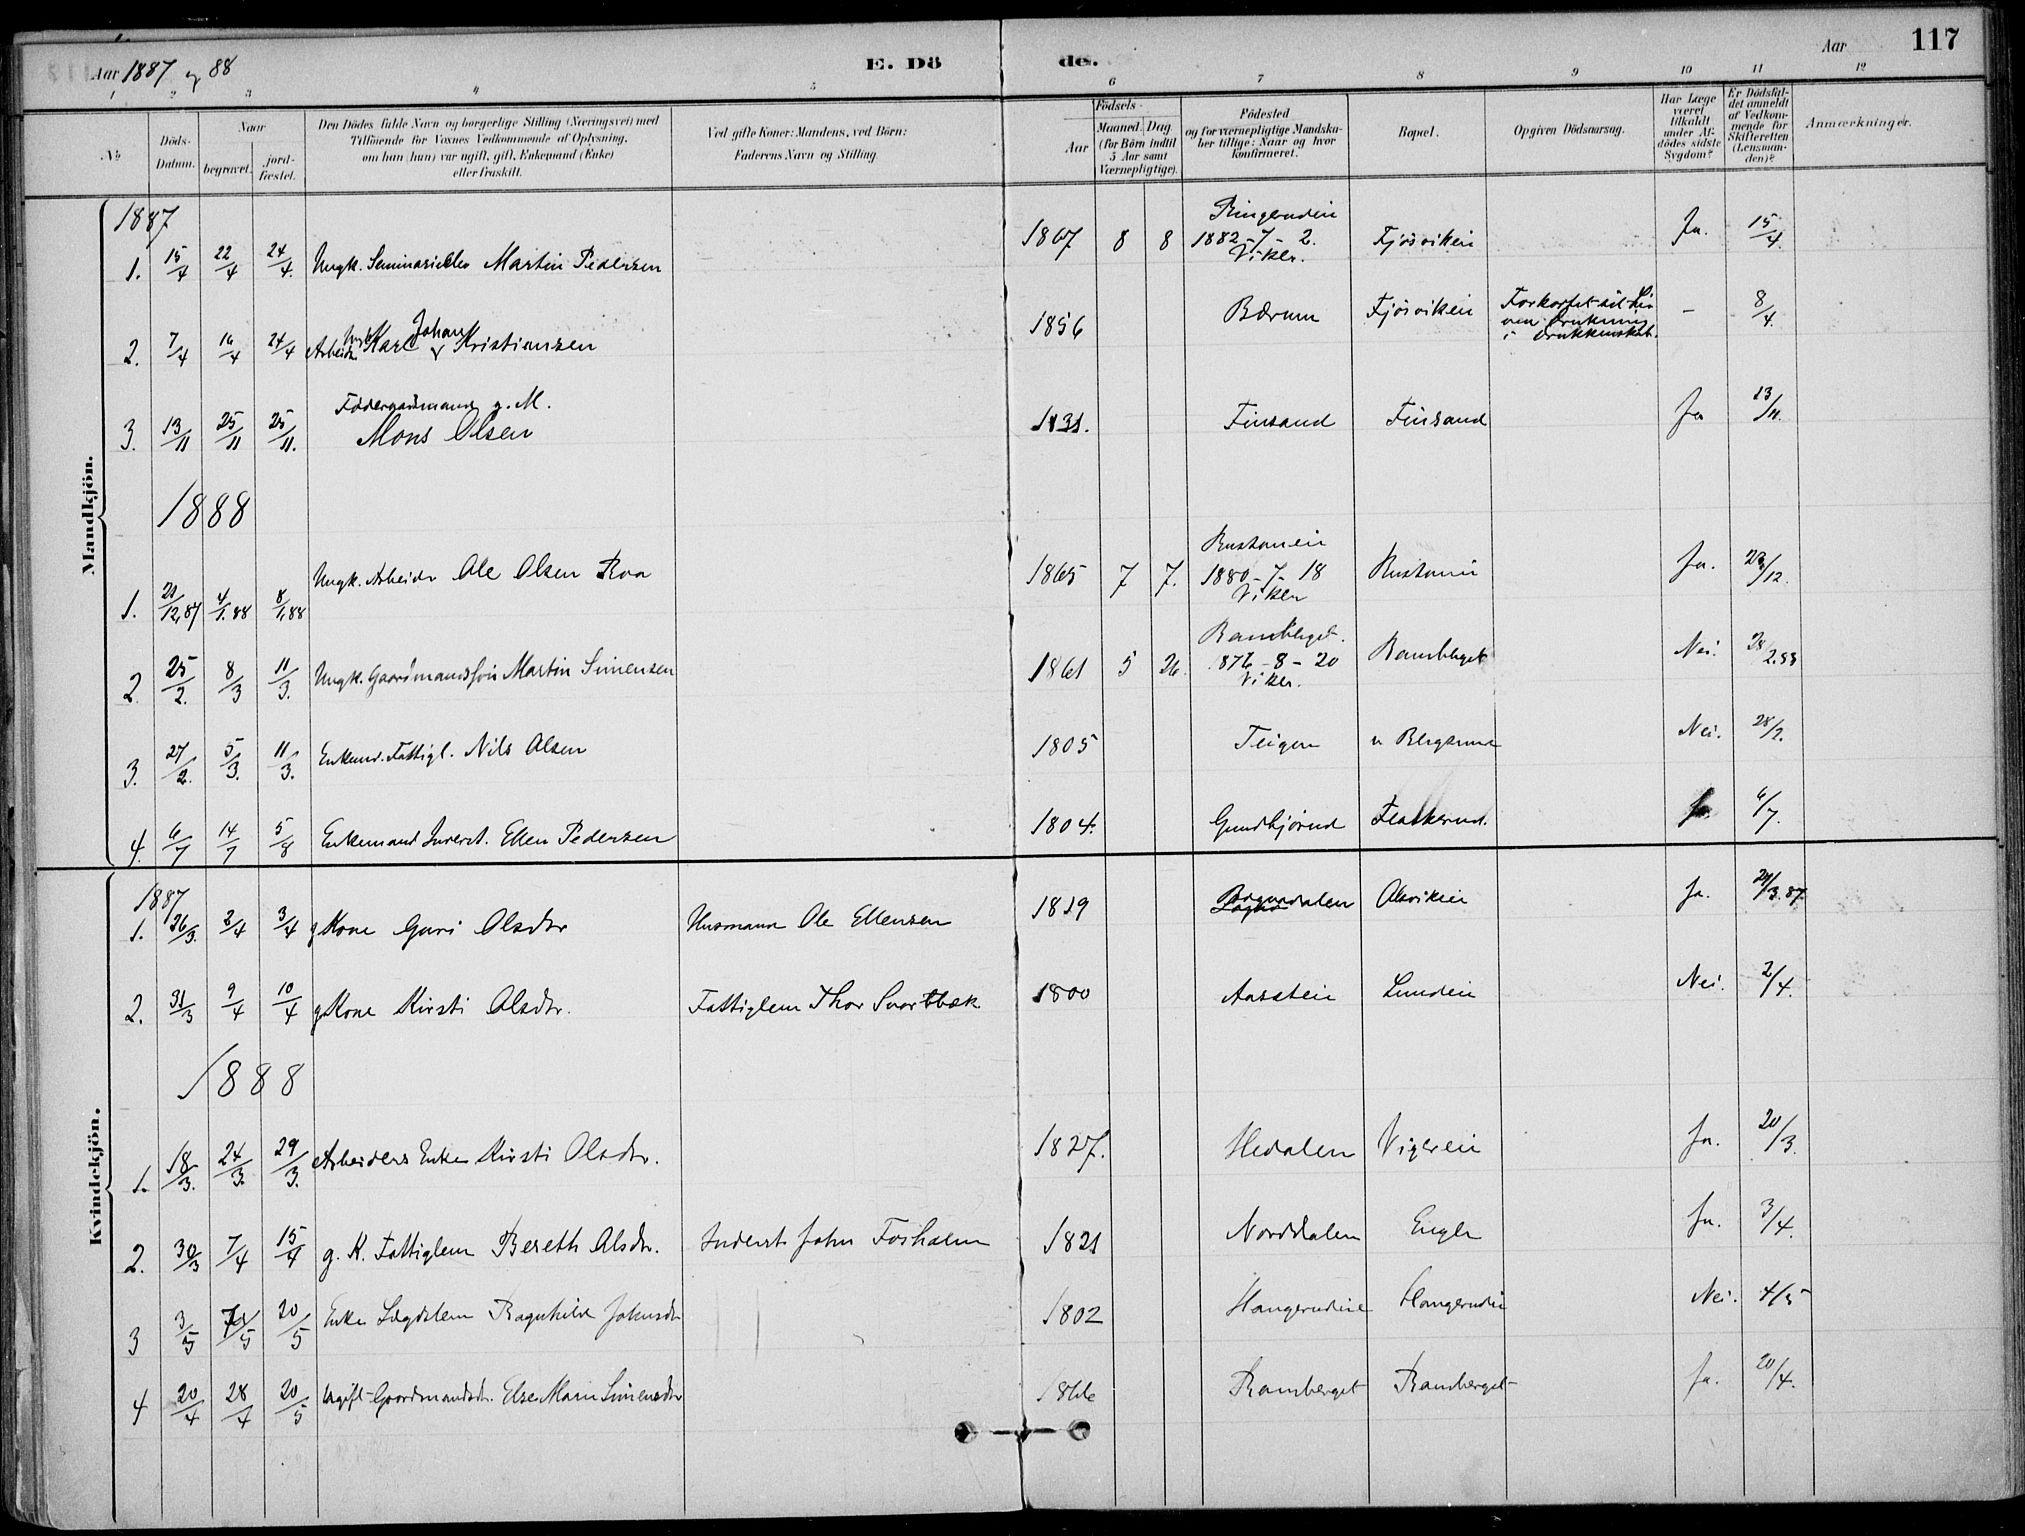 Aar 1887 og 88
E. Dö
de.
Aar
117
1 2 3 4 5 6 7 8 9 10 11 12
No
Döds-
Datum.
Naar
begravet.
jord-
fæstet.
Den Dödes fulde Navn og borgerlige Stilling (Næringsvei) med
Tilföiende for Voxnes Vedkommende af Oplysning,
om han (hun) var ugift, gift, Enkemand (Enke)
eller fraskilt.
Ved gifte Koner: Mandens, ved Börn:
Faderens Navn og Stilling.
Födsels-
Aar
Maaned. Dag.
(for Börn indtil
5 Aar samt
Værnepligtige).
Födested
og for værnepligtige Mandska-
ber tillige: Naar og hvor
konfirmeret.
Bopæl.
Opgiven Dödsaarsag.
Har Læge
været
tilkaldt
under Af-
dödes sidste
Sygdom?
Er Dödsfal-
det anmeldt
af Vedkom-
mende for
Skifteretten
(Lensman-
den)?
Anmærkninger.
Mandkjön.
1887
1. 15/4 22/4 24/4. Ungk. Seminarielev Martin Pedersen 1867 8 8 Ringerudeie 1882-7-2. Viker. Fjösvikeie Ja. 15/4.
2. 7/4 16/4 24/4 Arbeidr Ungk. Karl Johan Kristiansen 1856 Bærum Fjösvikeie Forkortet sit Liv ved Drukning i Drukkenskab. - 8/4.
3. 13/11 25/11 25/11. Föderaadsmand g. M. Mons Olsen 1831. Finsand Finsand Ja 13/11.
1888
1. 21/12.87 4/1.88 8/1.88 Ungk. Arbeidr Ole Olsen Roa 1865 7 7. 1880-7-18 Viker Ja. 23/12.
2 25/2. 8/3 11/3. Ungk. Gaardmandssön Martin Simensen 1861 5 26. Ramberget. 1876-8-20 Viker. Ramberget Nei. 28/2.88
3. 27/2. 5/3. 11/3. Enkem. Fattigl. Nils Olsen 1805 Teigen n Bergsund Nei. 28/2.
4. 6/7 14/7 5/8 Enkemand Inderst. Ellen Pedersen 1804. Gundbjörud Flaskerud. Ja. 6/7.
Kvindekjön.
1887
1. 26/3. 2/4 3/4 g Kone Guri Olsdtr Husmand Ole Ellensen 1819 Olsvikeie Ja. 29/3.87
2. 31/3 9/4 10/4 g Kone Kirsti Olsdtr. Fattiglem Thor Svartbæk 1800 Aasateie Lundeie Nei. 2/4.
1888
1. 18/3. 24/3. 29/3. Arbeiders Enke Kirsti Olsdtr. 1827. Hedalen Vigereie Ja. 20/3.
2. 30/3 7/4 15/4 g. K. Fattiglem Bereth Olsdtr. Inderst John Fosholm 1821 Norddalen Engle Ja. 3/4.
3 3/5 /5 20/5 Enke Lægdslem Ragnhild Johnsdtr 1802 Haugerudeie Haugerudeie Nei. 4/5
4 20/4 28/4 20/5 Ugift Gaardmandsdtr. Else Marie Simensdtr 1866 Ramberget Ramberget Ja. 20/4.